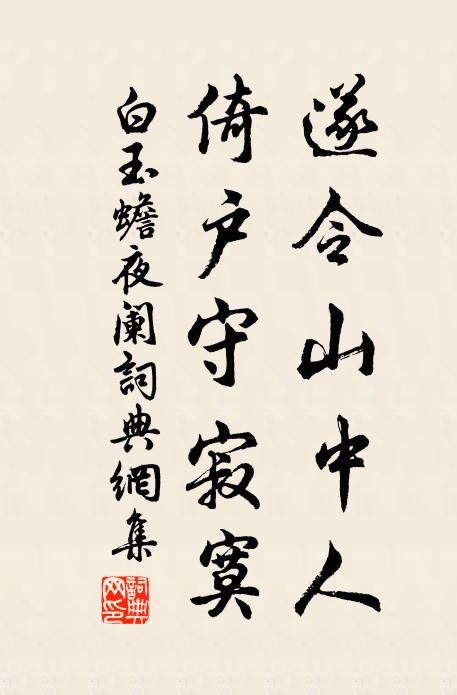 遂令山中人
倚户守寂寞
白玉蟾夜阑詞典網集
詞典網印